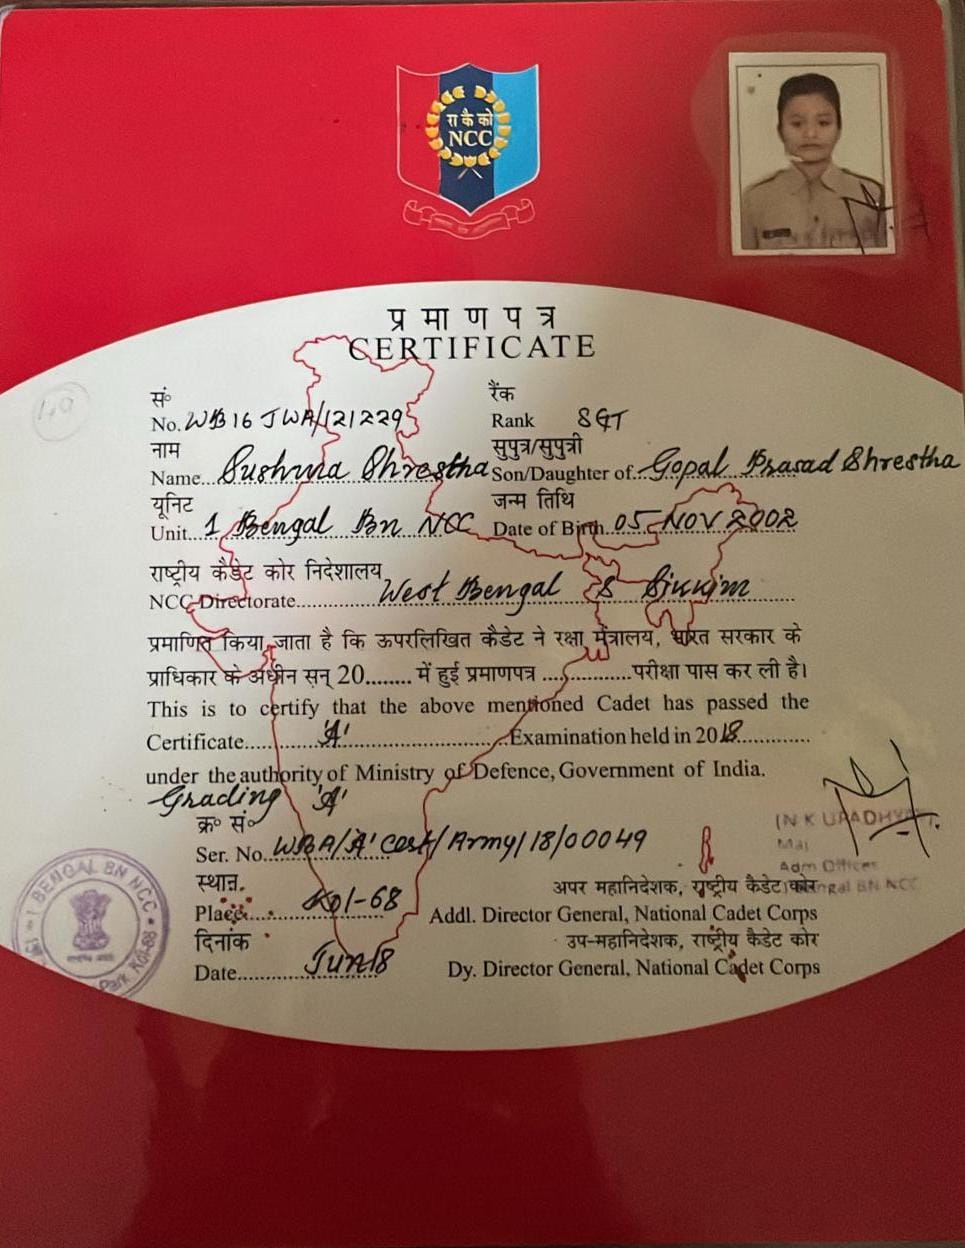 रा कै को
NCC
प्रमाणपत्र
CERTIFICATE
सं० रैंक
No. WB16 JWA/121229 Rank SGT
नाम सुपुत्र/सुपुत्री
Name... Sushma Shrestha Son/Daughter of... Gopal Prasad Shrestha
यूनिट जन्म तिथि
Unit... 1 Bengal Bn NCC Date of Birth 05 NOV 2002
राष्ट्रीय कैडेट कोर निदेशालय
NCC Directorate... West Bengal & Sikkim
प्रमाणित किया जाता है कि ऊपरलिखित कैडेट ने रक्षा मंत्रालय, भारत सरकार के
प्राधिकार के अधीन सन् 20........ में हुई प्रमाणपत्र ................. परीक्षा पास कर ली है।
This is to certify that the above mentioned Cadet has passed the
Certificate.... 'A' ....Examination held in 2018
under the authority of Ministry of Defence, Government of India.
Grading 'A'
क्र० सं०
Ser. No. WBA/'A' Cert/Army/18/00049
(N K UPADHYAY)
Maj
Adm Officer
1 Bengal BN NCC
स्थान
Place.... Kol-68
अपर महानिदेशक, राष्ट्रीय कैडेट कोर
Addl. Director General, National Cadet Corps
दिनांक
उप-महानिदेशक, राष्ट्रीय कैडेट कोर
Date.... Jun 18
Dy. Director General, National Cadet Corps
1 BENGAL BN NCC
Park, Kol-68